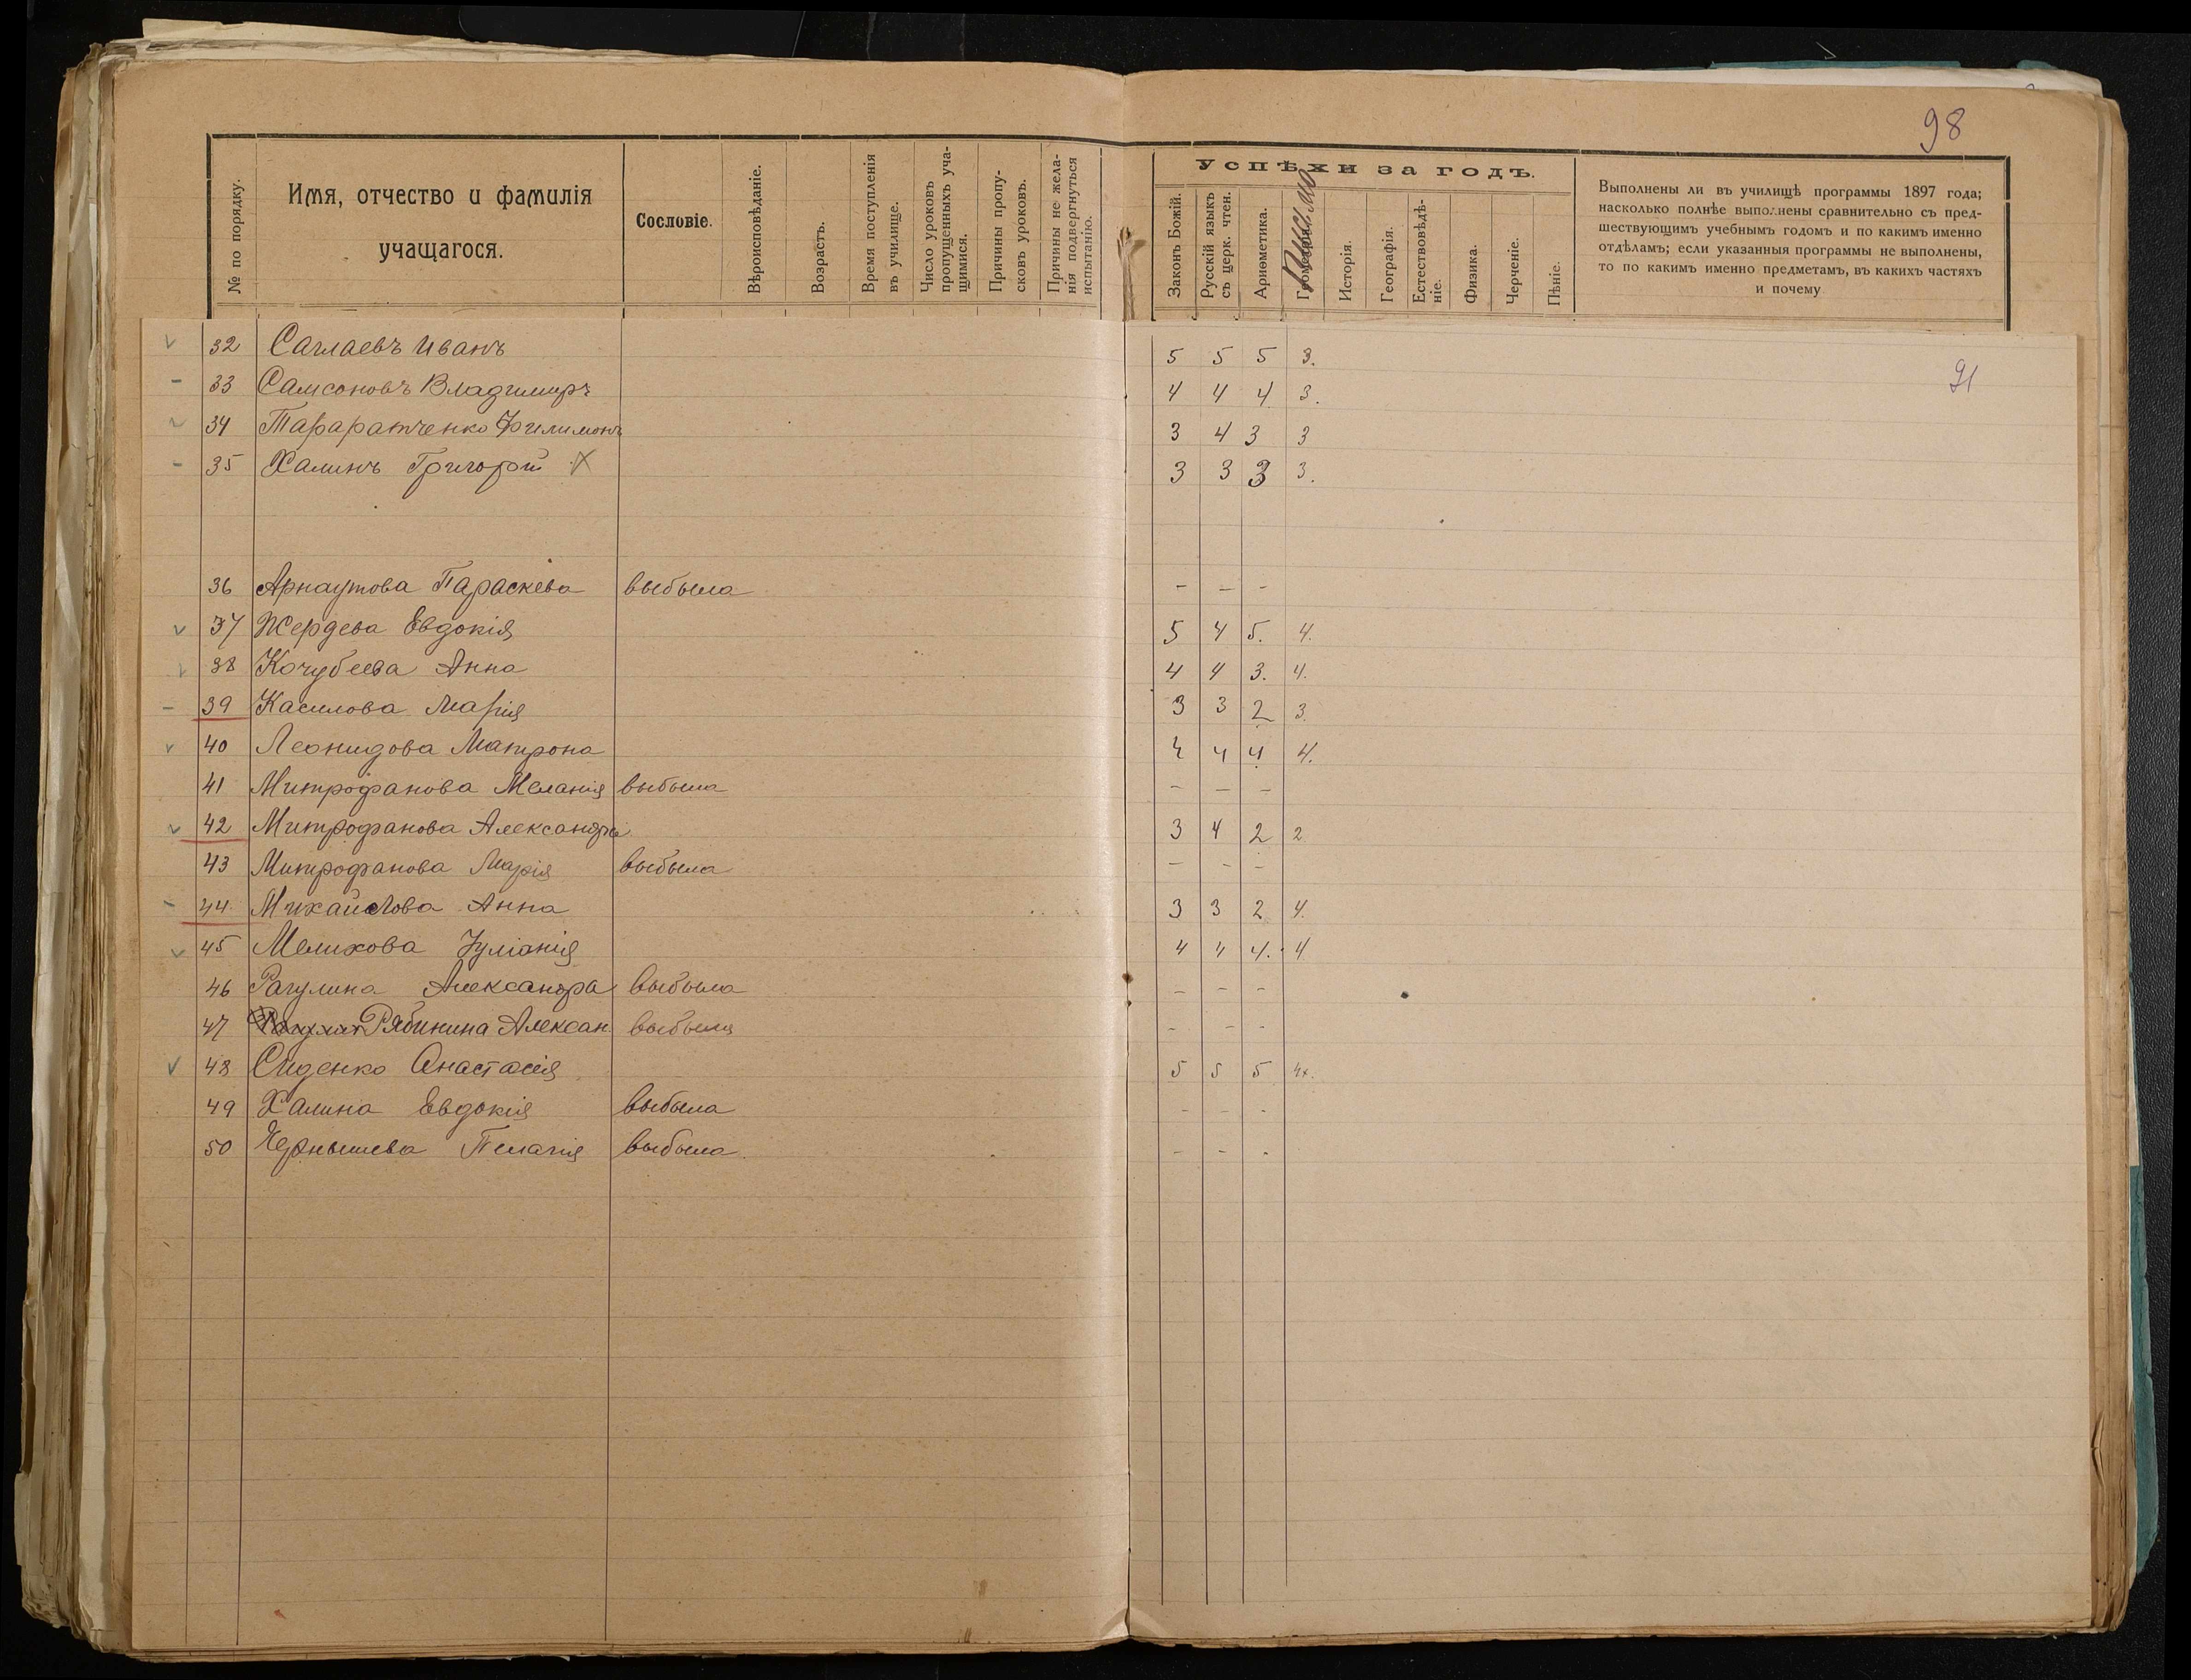 98
№ по порядку.
Имя, отчество и фамилія
учащагося.
Сословіе.
Вѣроисповѣданіе.
Возрастъ.
Время поступленія
въ училище.
Число уроковъ
пропущенныхъ уча-
щимися.
Причины пропу-
сковъ уроковъ.
Причины не жела-
нія подвергнуться
испытанію.
Успѣхи за годъ.
Законъ Божій.
Русскій языкъ
съ церк. чтен.
Ариѳметика.
Письмо
Исторія.
Географія.
Естествовѣдѣ-
ніе.
Физика.
Черченіе.
Пѣніе.
Выполнены ли въ училищѣ программы 1897 года;
насколько полнѣе выполнены сравнительно съ пред-
шествующимъ учебнымъ годомъ и по какимъ именно
отдѣламъ; если указанныя программы не выполнены,
то по какимъ именно предметамъ, въ какихъ частяхъ
и почему
91
32 Саглаевъ Иванъ 5 5 5 3.
33 Самсоновъ Владимиръ 4 4 4 3.
34 Тараратченко Филимонъ 3 4 3 3
35 Халинъ Григорій 3 3 3 3.
36 Арнаутова Параскева выбыла - - -
37 Жердева Евдокія 5 4 5. 4.
38 Кочубеева Анна 4 4 3. 4.
39 Касилова Марія 3 3 2 3.
40 Леонидова Матрона 4 4 4 4.
41 Митрофанова Меланія выбыла - - -
42 Митрофанова Александра 3 4 2 2
43 Митрофанова Марія выбыла - - -
44. Михайлова Анна 3 3 2 4.
45 Мелихова Іуліанія 4 4 4. 4
46 Рагулина Александра выбыла - - -
47 Рябинина Алексан. выбыла - - -
48 Сиденко Анастасія 5 5 5 4+.
49 Халина Евдокія выбыла - - -
50 Чернышева Пелагія выбыла. - - -